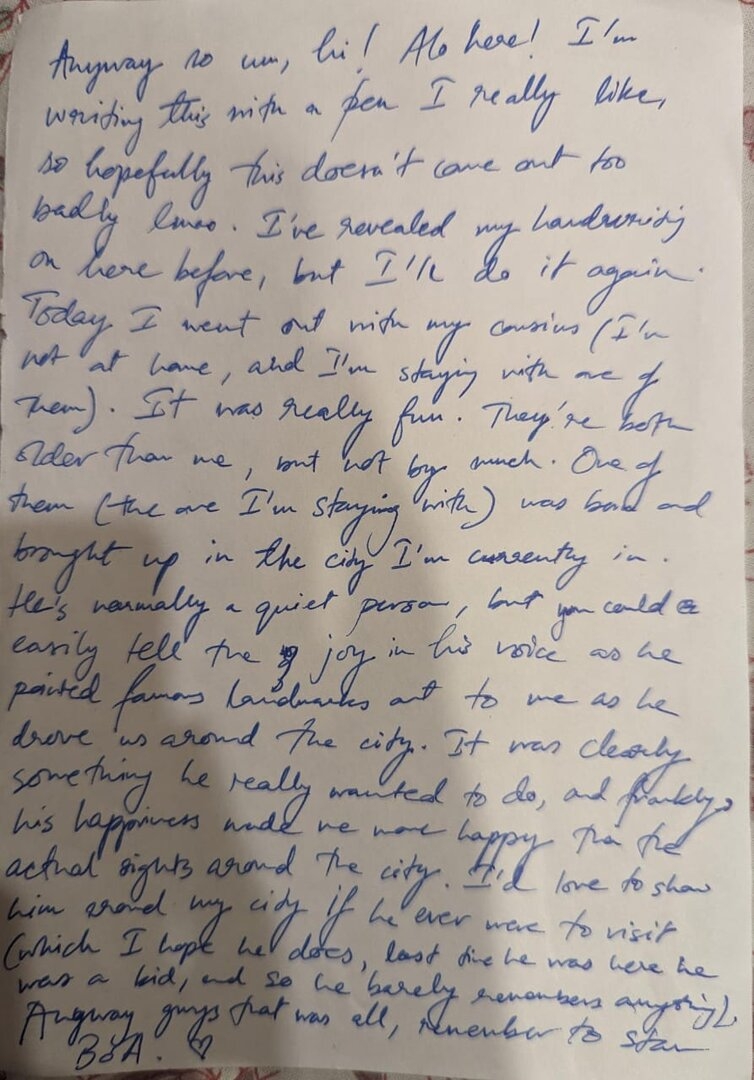 Anyway so um, hi! Alo here! I'm
writing this with a pen I really like,
so hopefully this doesn't come out too
badly lmao. I've revealed my handwriting
on here before, but I'll do it again.
Today I went out with my cousins (I'm
not at home, and I'm staying with one of
them). It was really fun. They're both
older than me, but not by much. One of
them (the one I'm staying with) was born and
brought up in the city I'm currently in.
He's normally a quiet person, but you could
easily tell the joy in his voice as he
pointed famous landmarks out to me as he
drove us around the city. It was clearly
something he really wanted to do, and frankly,
his happiness made me more happy than the
actual sights around the city. I'd love to show
him around my city if he ever were to visit
(which I hope he does, last time he was here he
was a kid, and so he barely remembers anything).
Anyway guys that was all, remember to stan
♡